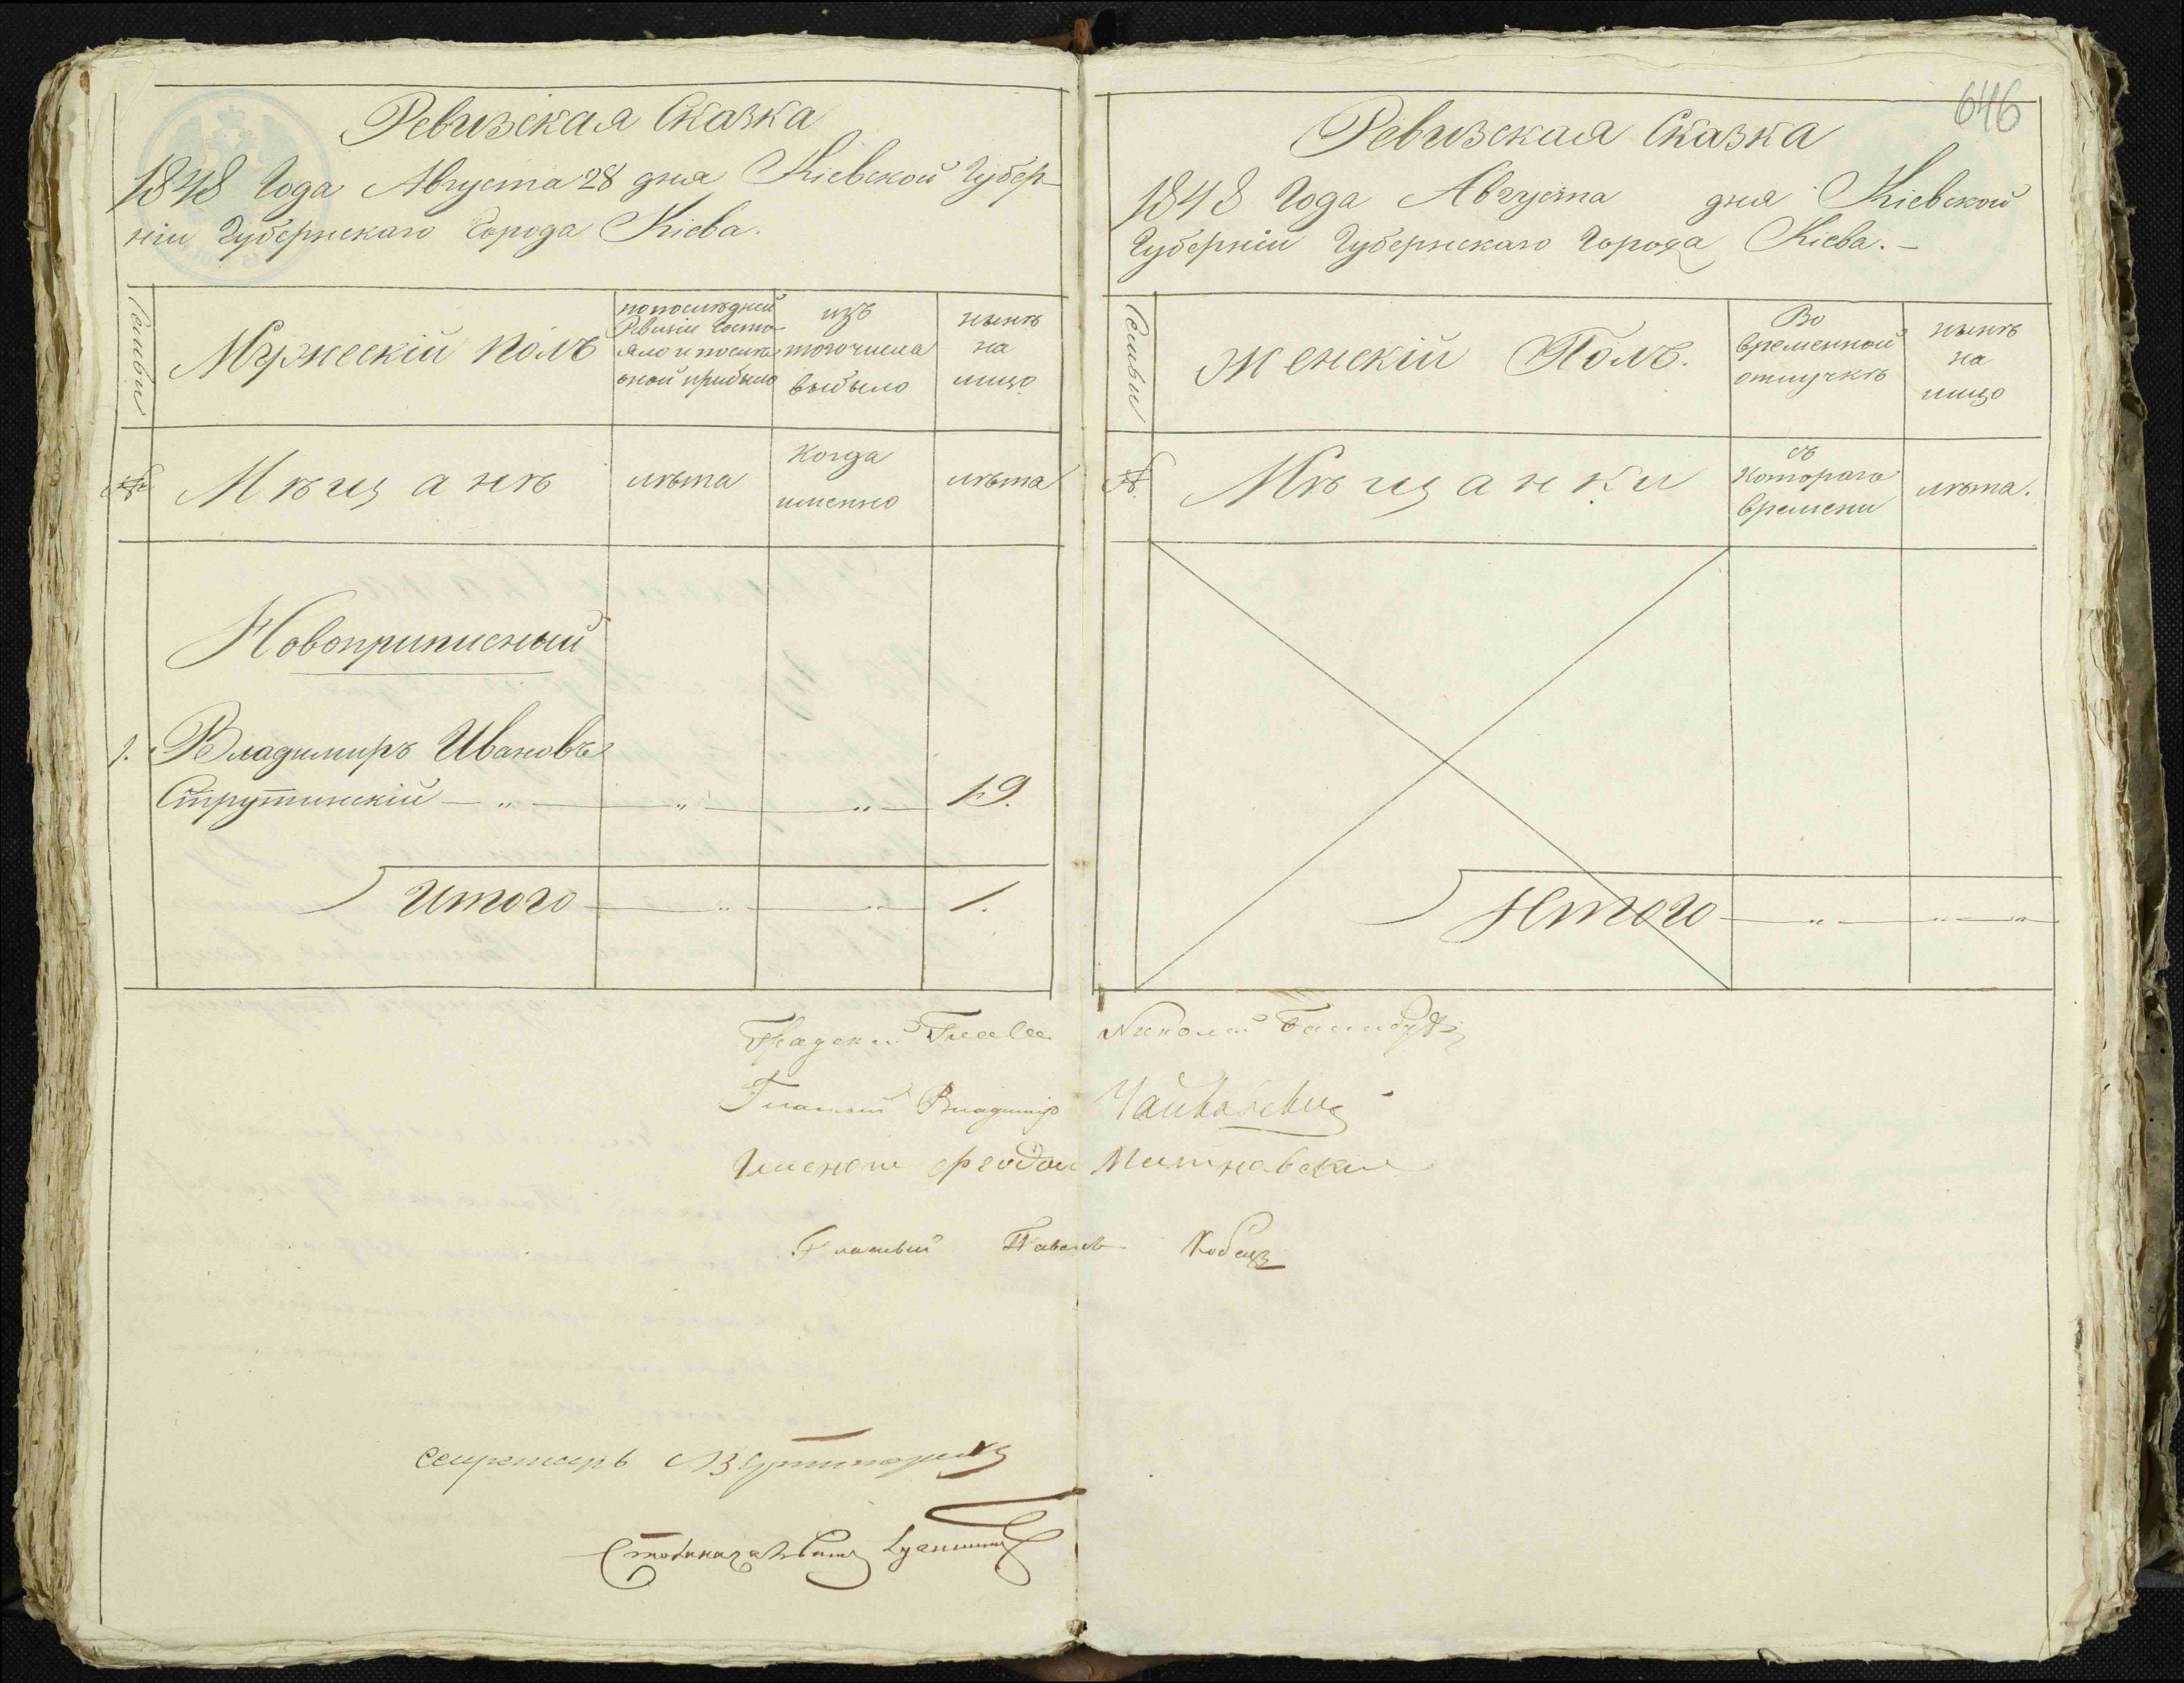 Ревизская Сказка
1848 Года Августа 28 дня Кіевской Губер-
ніи Губернскаго Города Кіева.
Семьи
Мужескій полъ
по последней
Ревизіи состо-
яло и после
оной прибыло
изъ
того числа
выбыло
нынѣ
на
лицо
№
Мѣщанѣ
лѣта
Когда
именно
лѣта
Новоприписный
1. Владимиръ Ивановъ
Струтинскій — „ — „ — „ — 19.
Итого — „ — „ — 1.
646
Ревизская Сказка
1848 Года Августа дня Кіевской
Губерніи Губернскаго Города Кіева. —
Семьи
Женскій Полъ.
Во
временной
отлучкѣ
нынѣ
на
лицо
№
Мѣщанки
съ
Котораго
времени
лѣта.
Итого — „ — „ — „
Градский Глава Николай
Гласный Владимір
Гласный Павелъ
Секретарь
Столоначальникъ